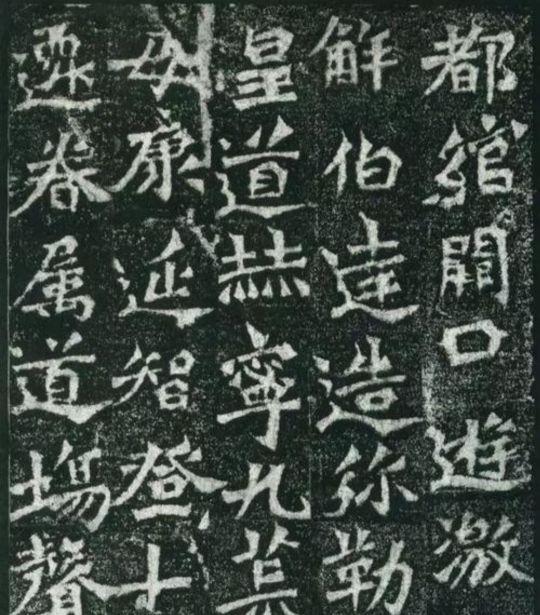 都綰闕口遊激
解伯達造弥勒
皇道赫寧九荒
母康延智登十
遷眷属道場聲